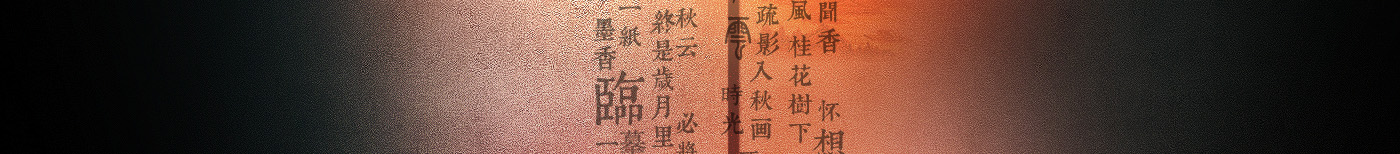 聞香 怀想
風 桂花樹下
疏影入秋画
時光
秋云 必將
終是歲月里
一紙
墨香
臨
一